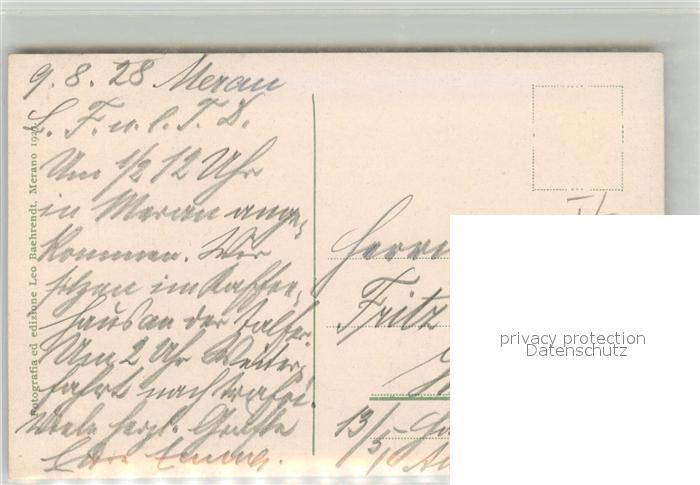 9.8.28 Meran
L. F. u. l. T. D.
Um 1/2 12 Uhr
in Meran ange-
kommen. Wir
sitzen im Kaffee-
haus an der Talfer.
Um 2 Uhr Weiter-
fahrt nach Trafoi.
Viele herzl. Grüße
Emma.
Fotografia ed edizione Leo Baehrendt, Merano
Herrn
Fritz
13/5
privacy protection
Datenschutz